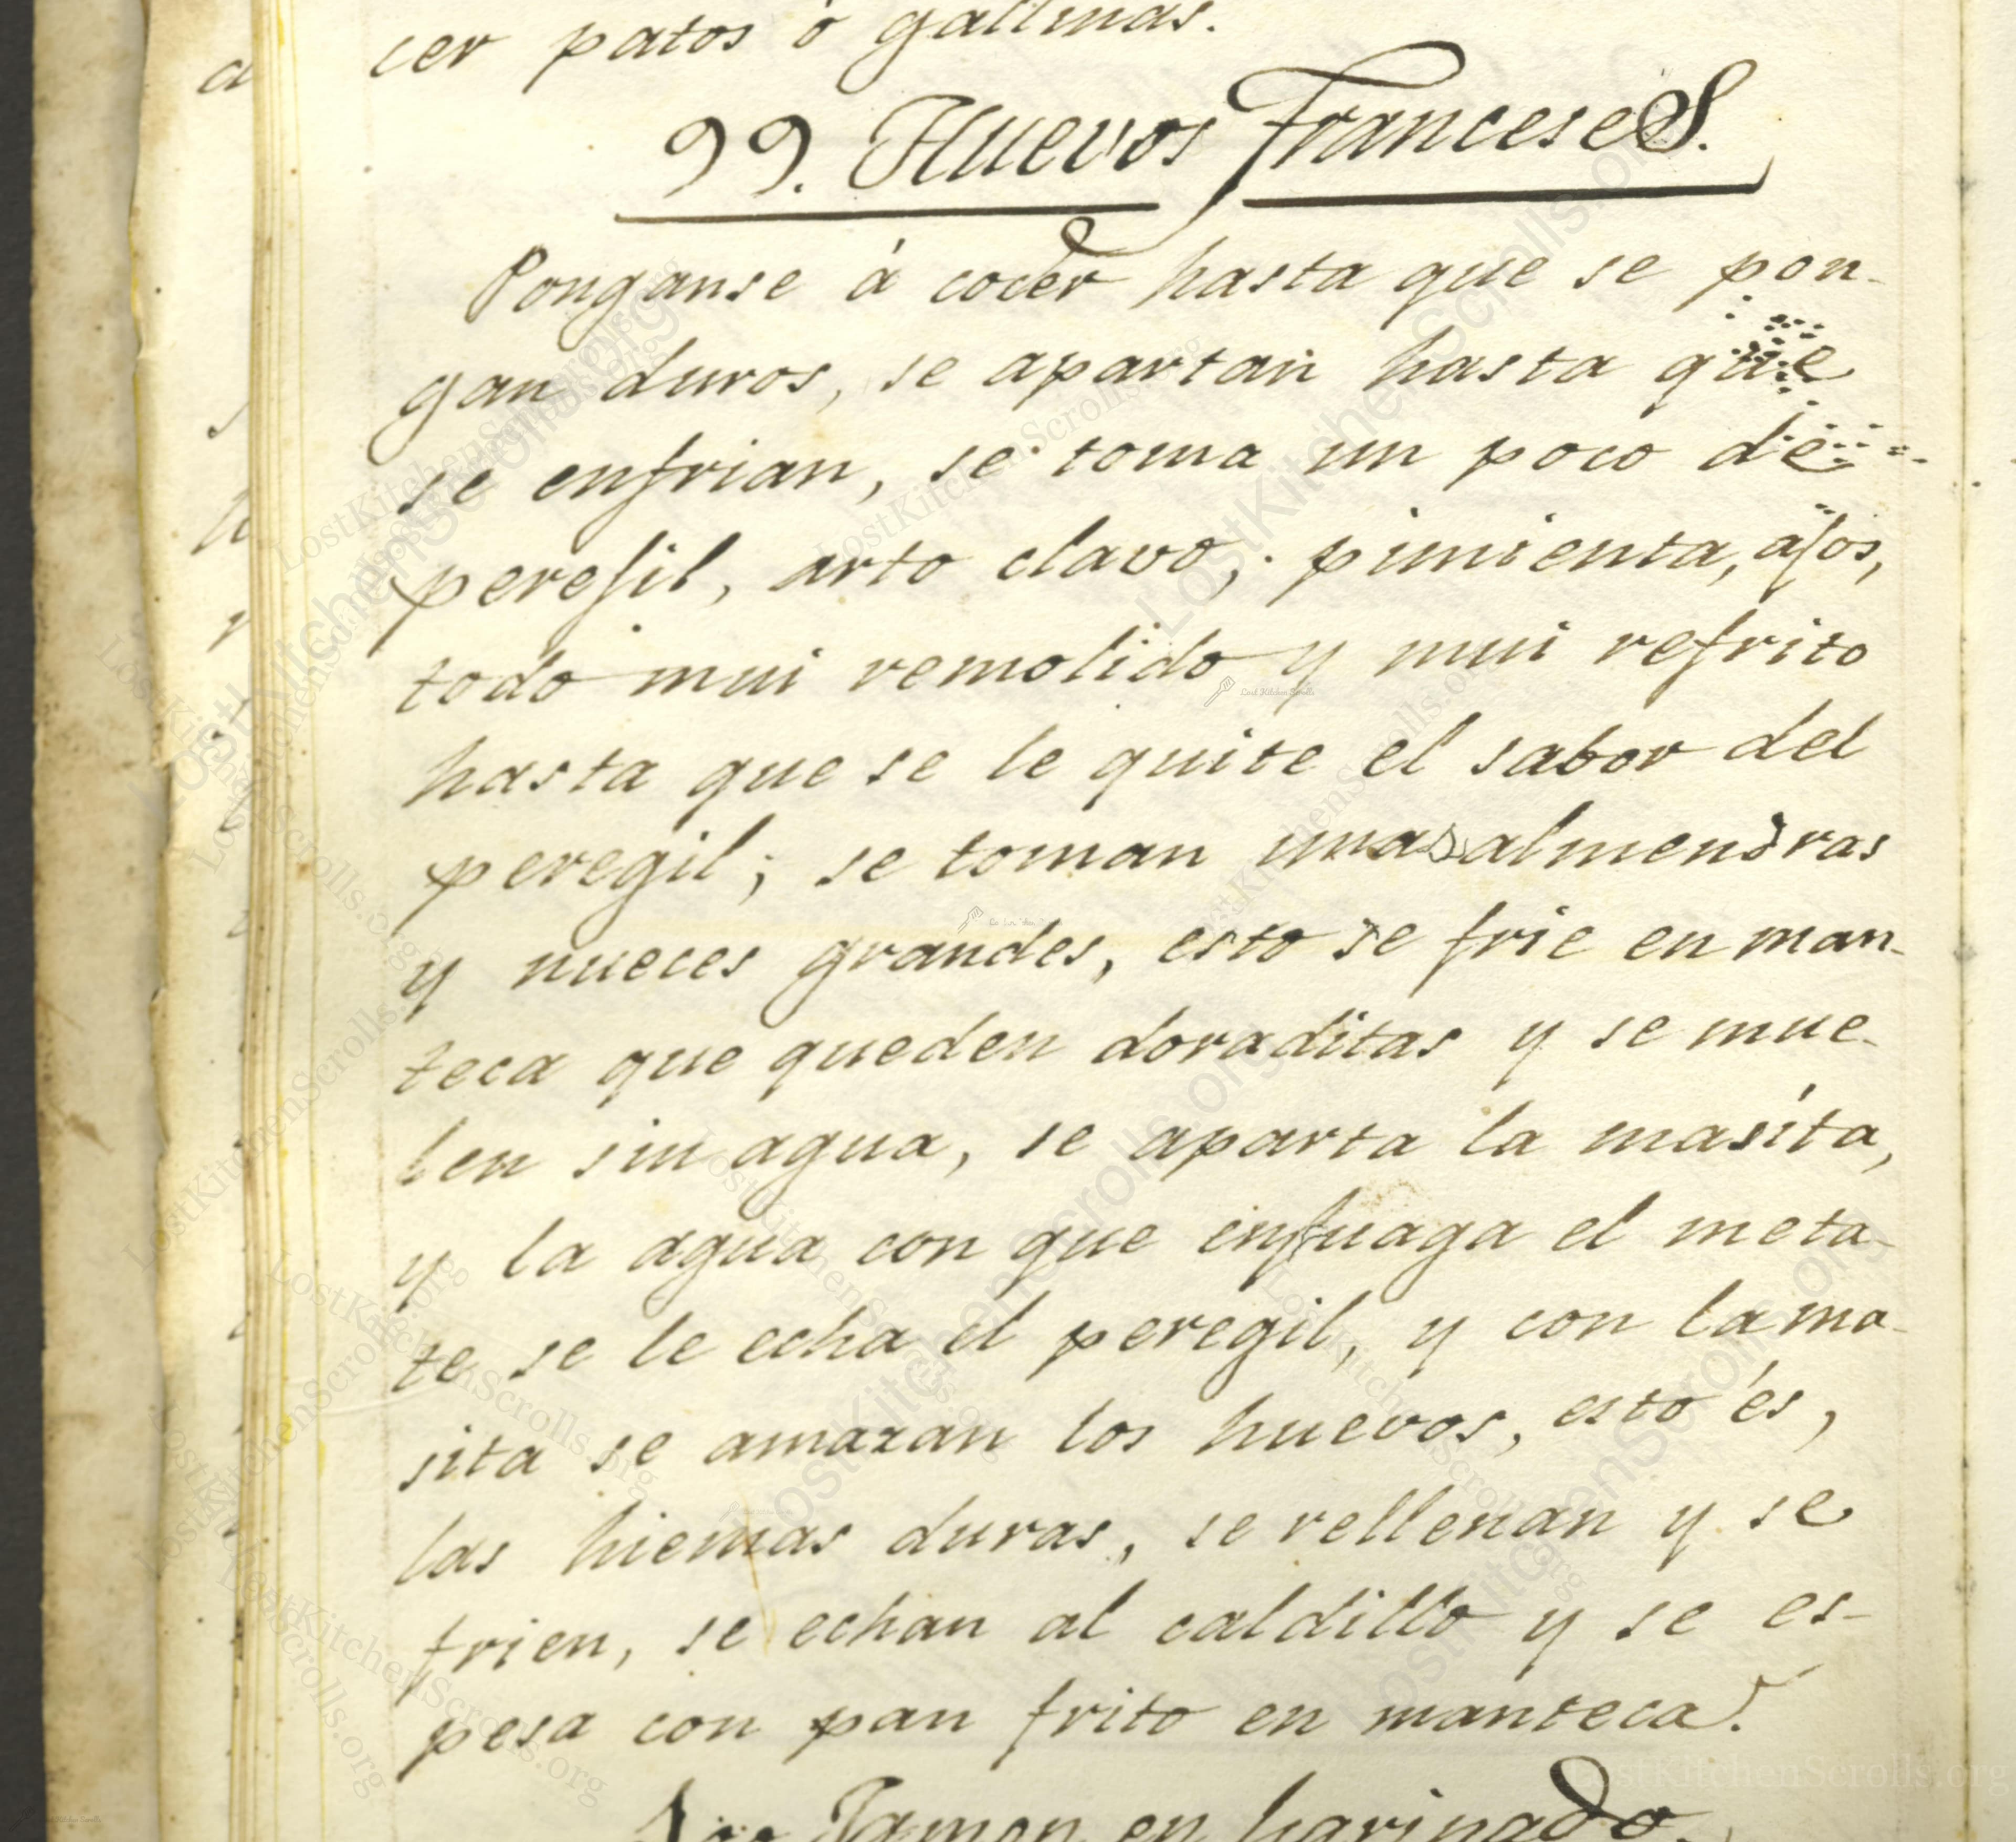 cer patos ó gallinas.
99. Huevos Franceses.
Ponganse á cocer hasta que se pon-
gan duros, se apartan hasta que
se enfrian, se toma un poco de
perejil, arto clavo, pimienta, ajos,
todo mui remolido y mui refrito
hasta que se le quite el sabor del
peregil; se toman unas almendras
y nueces grandes, esto se frie en man-
teca que queden doraditas y se mue-
len sin agua, se aparta la masíta,
y la agua con que enjuaga el meta-
te se le echa el peregil, y con la ma-
sita se amazan los huevos, esto és,
las hiemas duras, se rellenan y se
frien, se echan al caldillo y se es-
pesa con pan frito en manteca.
Jamon en harinado.
LostKitchenScrolls.org